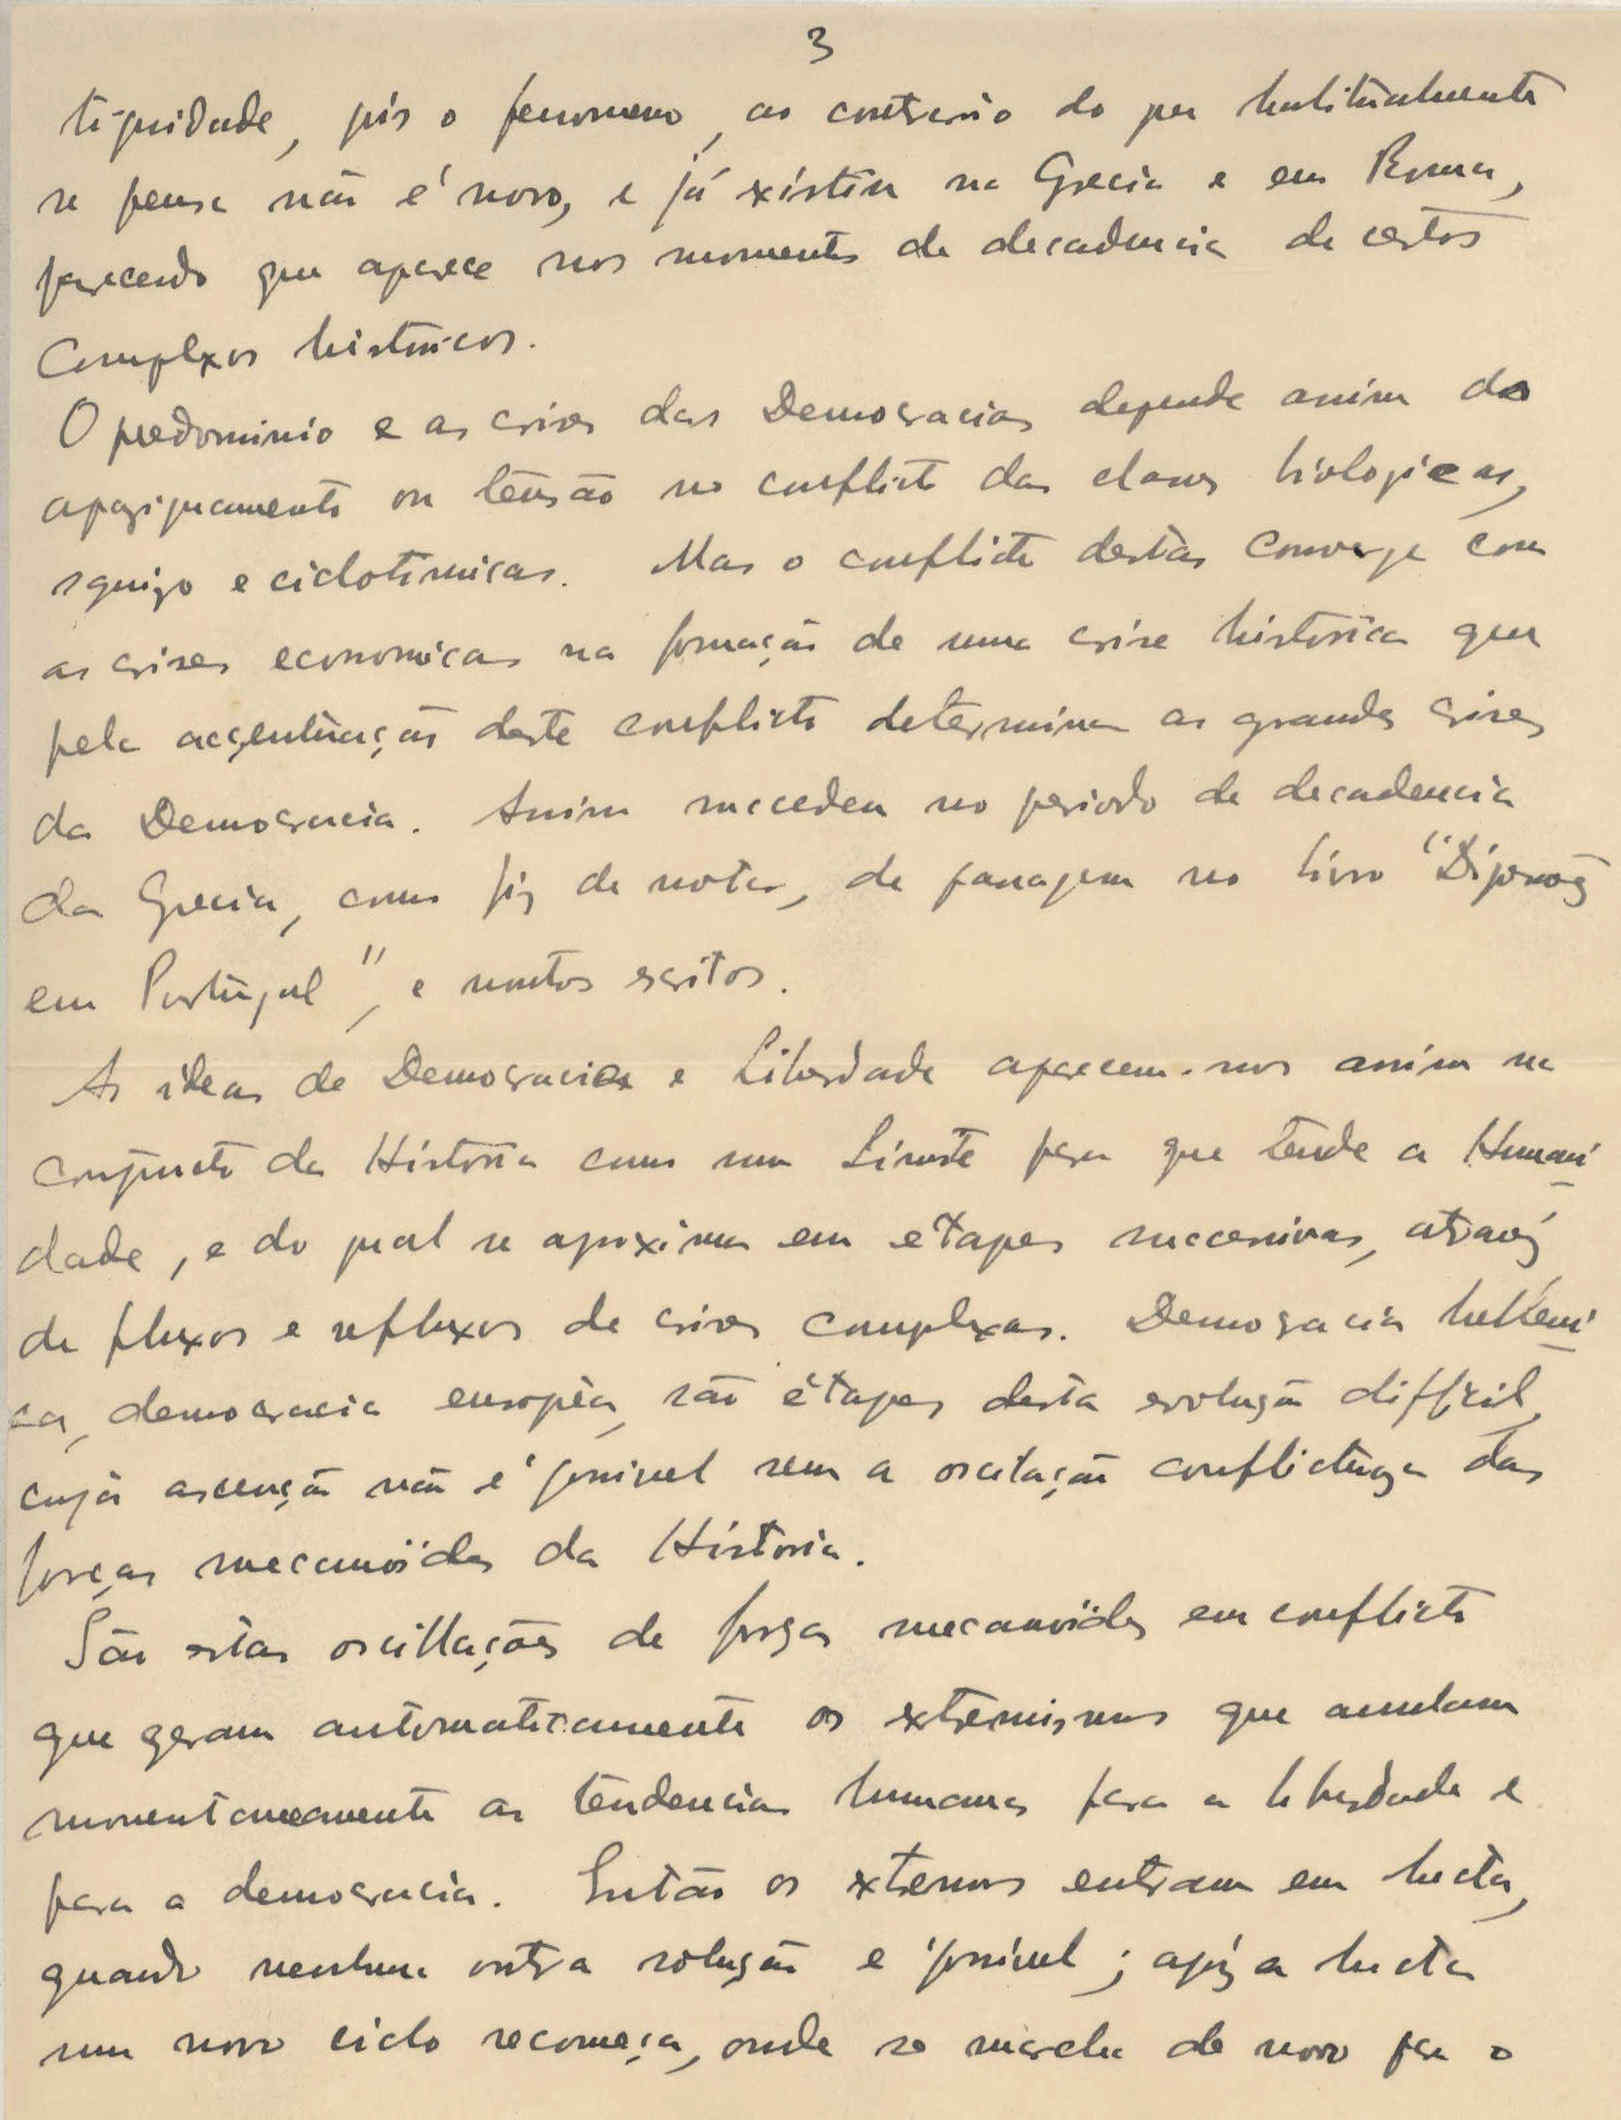 3
tiguidade, pois o fenomeno, ao contrario do que habitualmente
se pensa não é novo, e já existiu na Grecia e em Roma,
parecendo que aparece nos momentos de decadencia de certos
Complexos historicos.
O predominio e as crises das Democracias depende assim do
apaziguamento ou tensão no conflicto das classes biologicas,
squizo e ciclotimicas. Mas o conflicto destas converge com
as crises economicas na formação de uma crise historica que
pela accentuação deste conflicto determina as grandes crises
da Democracia. Assim succedeu no periodo de decadencia
da Grecia, como fiz de notar, de passagem no livro "Digenoz
em Portugal", e noutos escritos.
As ideas de Democracia e Liberdade aparecem-nos assim no
conjuncto da Historia como um Limite para que tende a Humani
dade, e do qual se aproxima em etapes successivas, atravez
de fluxos e refluxos de crises complexas. Democracia helleni
ca, democracia européa, são étapes desta evolução difficil,
cuja ascenção não é possivel sem a oscilação conflictuosa das
forças mecanoïdes da Historia.
São estas oscillações de forças mecanoïdes em conflicto
que geram automaticamente os extremismos que anulam
momentaneamente as tendencias humanas para a liberdade e
para a democracia. Então os extremos entram em lucta,
quando nenhuma outra solução é possivel; após a lucta
um novo ciclo recomeça, onde se marcha de novo para o